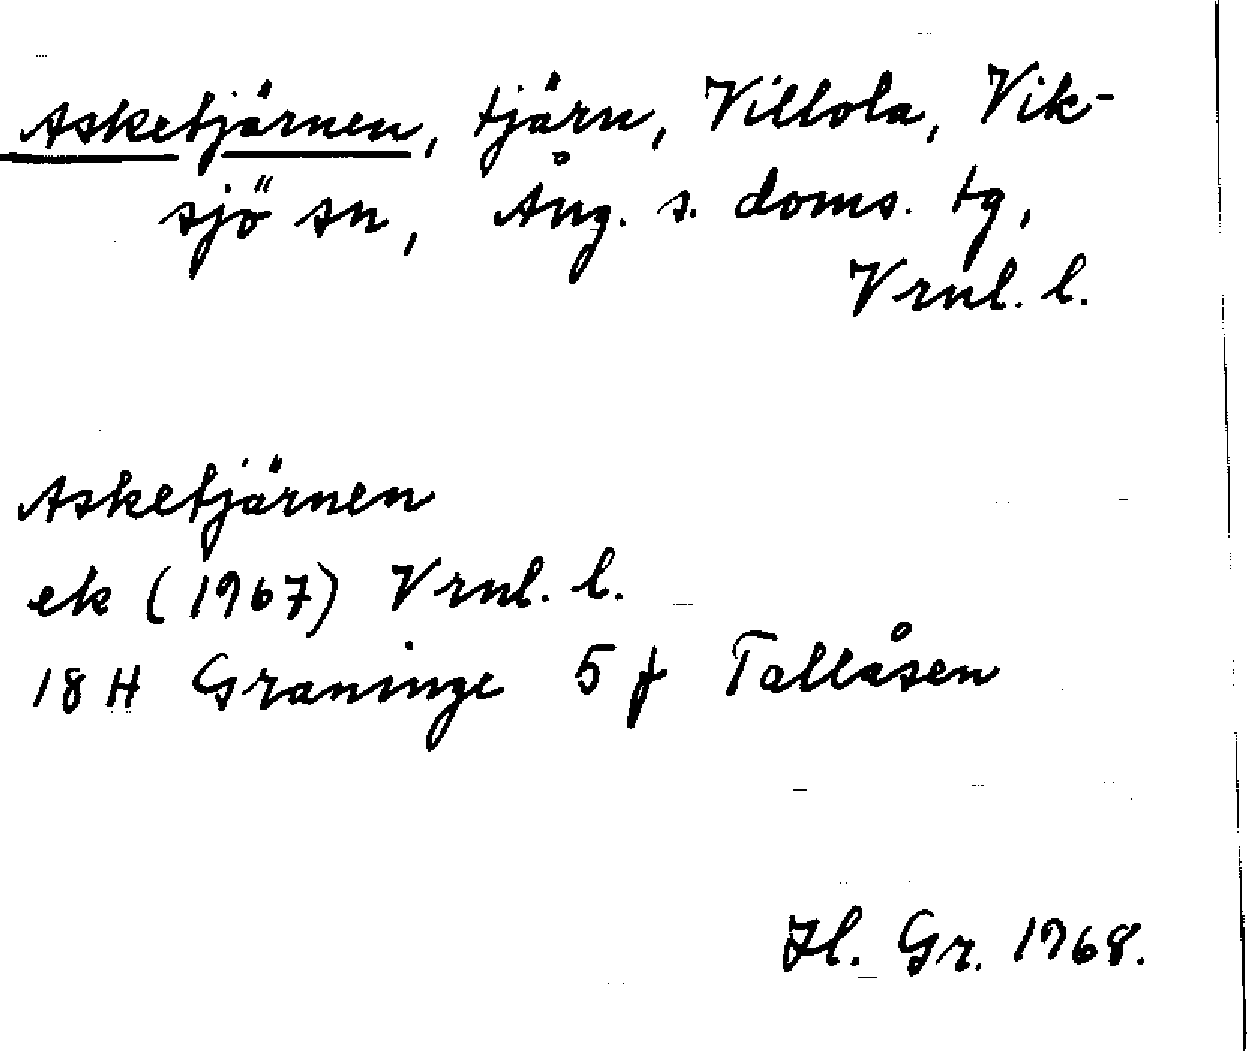 Asketjärnen, tjärn, Villola, Vik-
sjö sn, Ång. s. doms. tg,
Vrnl. l.
Asketjärnen
ek (1967) Vrnl. l.
18 H Graninge 5 f Tallåsen
Hl. Gr. 1968.